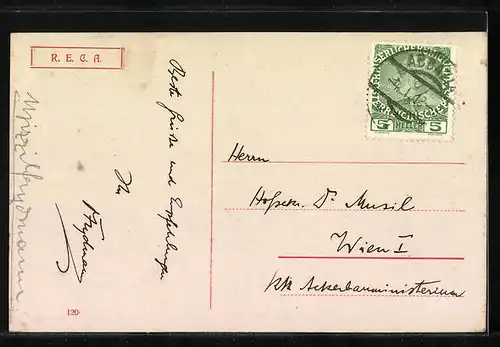 R. E. C. A.
Beste Grüsse und Empfehlungen
Ihr
KAISERLICHE KÖNIGLICHE
ÖSTERREICHISCHE POST
5 HELLER 5
Herrn
Hofsekr. Dr. Musil
Wien I
KK Ackerbauministerium
120